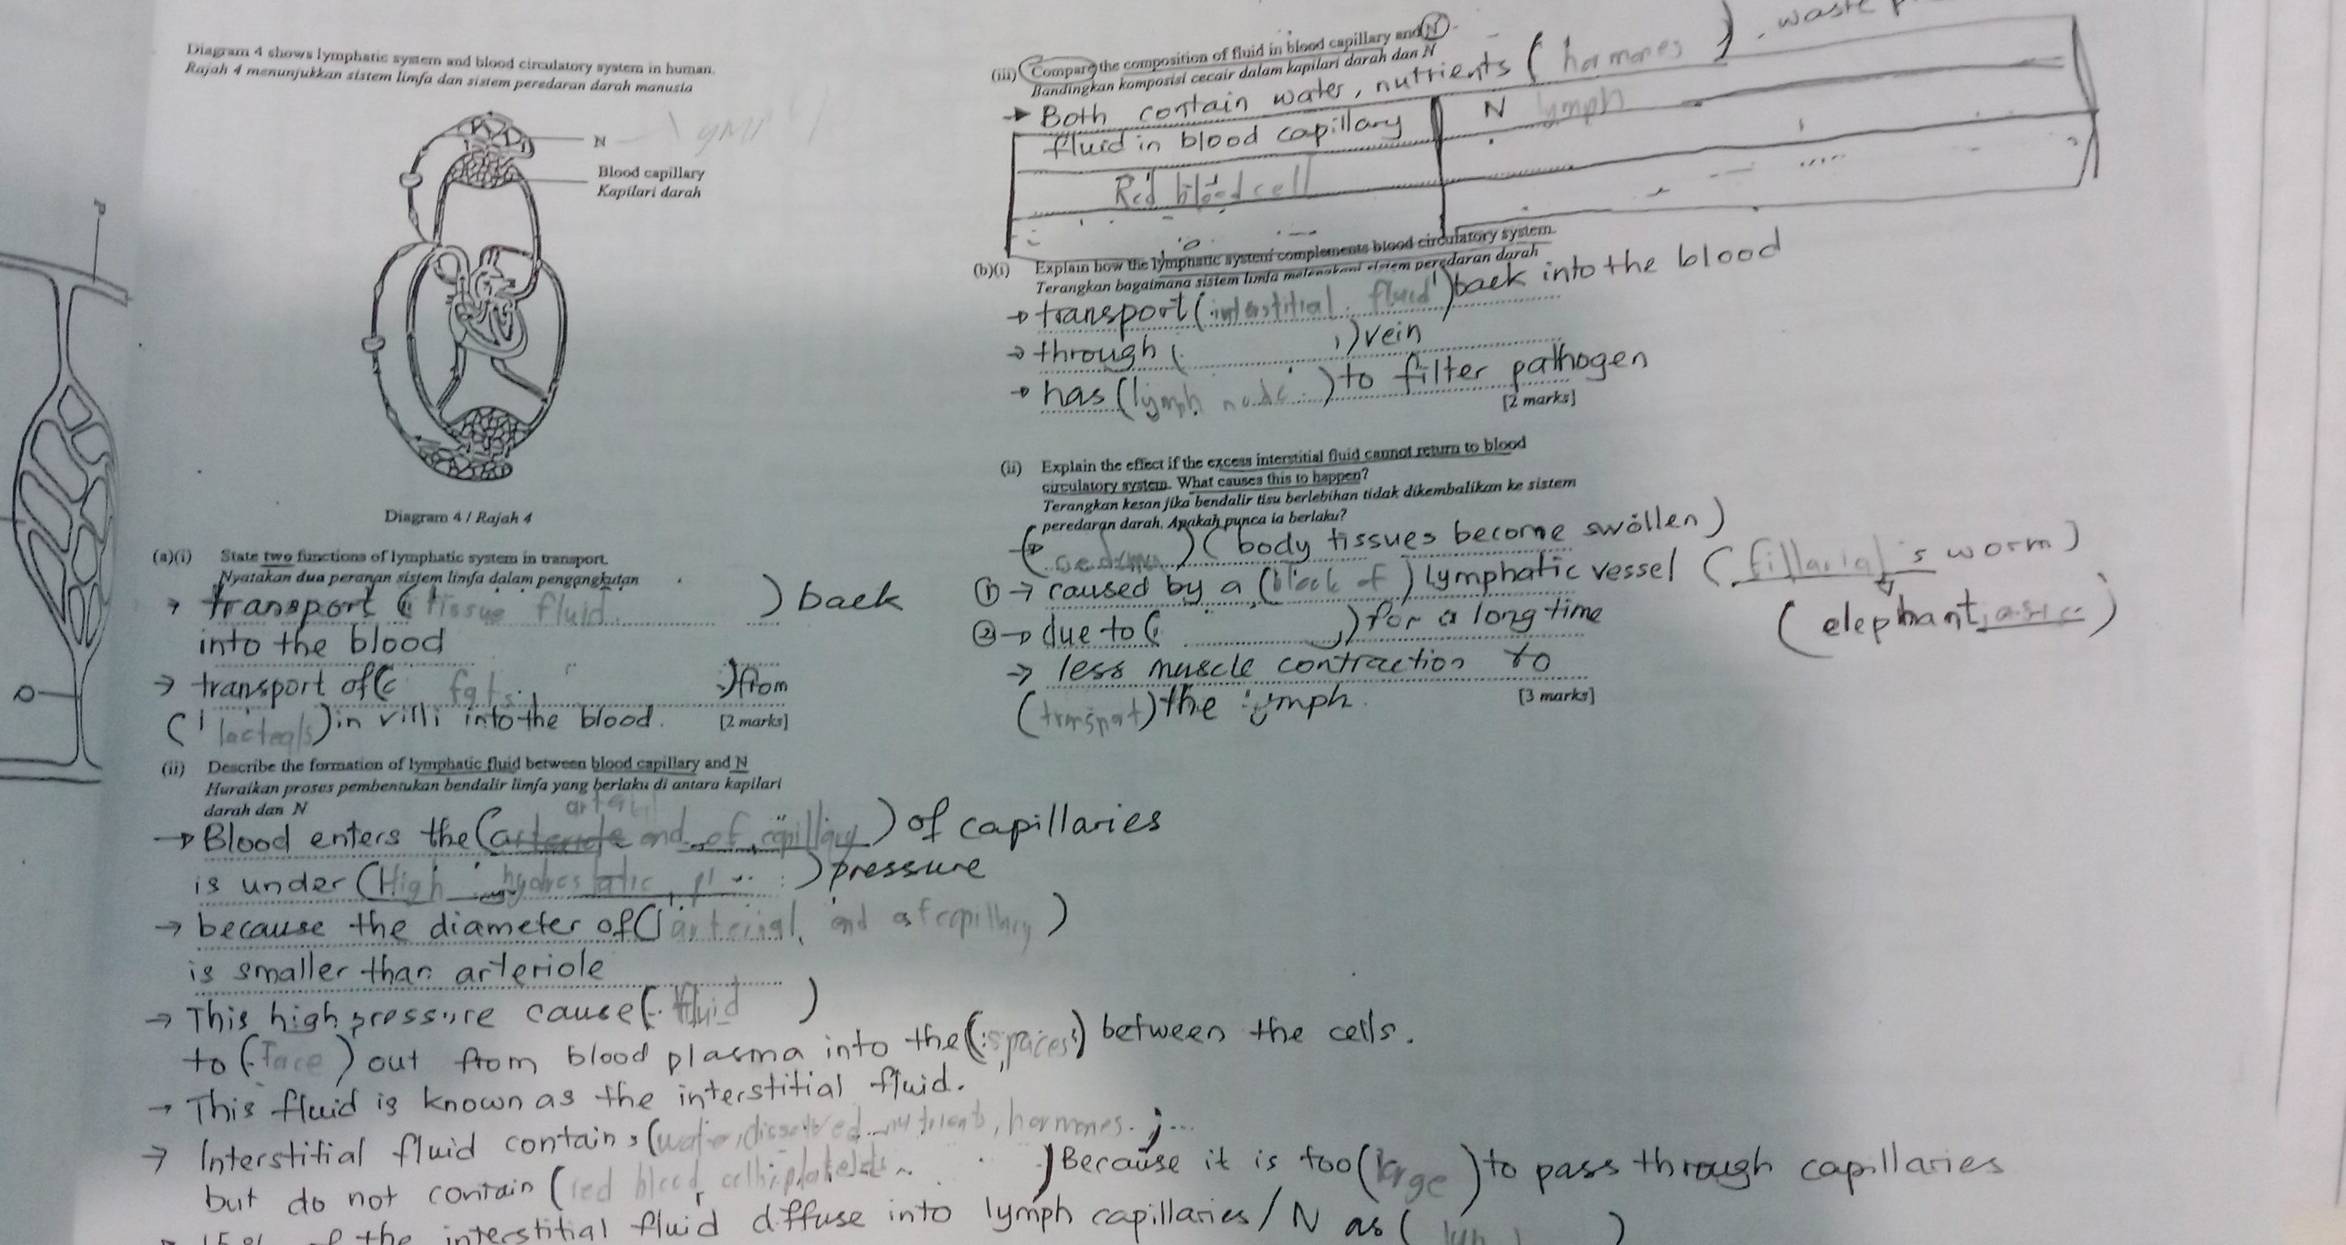 Diagram 4 shows lymphatic system and blood circulatory system in human.
Rajah 4 menunjukkan sistem limfa dan sistem peredaran darah manusia
N
Blood capillary
Kapilari darah
P
Diagram 4 / Rajah 4
(a)(i) State two functions of lymphatic system in transport.
Nyatakan dua peranan sistem limfa dalam pengangkutan
→ transport (tissue fluid) back
into the blood
→ transport of (fats) from
(lacteals) in villi into the blood. [2 marks]
(ii) Describe the formation of lymphatic fluid between blood capillary and N
Huraikan proses pembentukan bendalir limfa yang berlaku di antara kapilari
darah dan N
→ Blood enters the (arterial end of capillary) of capillaries
is under (High hydrostatic) pressure
→ because the diameter of (arterial end of capillary)
is smaller than arteriole
→ This high pressure cause (fluid)
to ( ) out from blood plasma into the (spaces) between the cells.
→ This fluid is known as the interstitial fluid.
→ Interstitial fluid contains (water, dissolved nutrients, hormones.
but do not contain (red blood cells, platelets ) Because it is too (large) to pass through capillaries
the interstitial fluid diffuse into lymph capillaries / N as ( )
(iii) Compare the composition of fluid in blood capillary and N.
Bandingkan komposisi cecair dalam kapilari darah dan N
→ Both contain water, nutrients (hormones), waste
fluid in blood capillary N lymph
Red blood cell
(b)(i) Explain how the lymphatic system complements blood circulatory system.
Terangkan bagaimana sistem limfa melengkapi sistem peredaran darah
→ transport (interstitial fluid) back into the blood
→ through ( ) vein
→ has (lymph node) to filter pathogen
[2 marks]
(ii) Explain the effect if the excess interstitial fluid cannot return to blood
circulatory system. What causes this to happen?
Terangkan kesan jika bendalir tisu berlebihan tidak dikembalikan ke sistem
peredaran darah. Apakah punca ia berlaku?
→ (oedema) (body tissues become swollen)
① → caused by a (block of) lymphatic vessel (fillarial's worm)
(elephantiasis)
② → due to ( ) for a long time
→ less muscle contraction to
[3 marks]
(transport) the lymph.